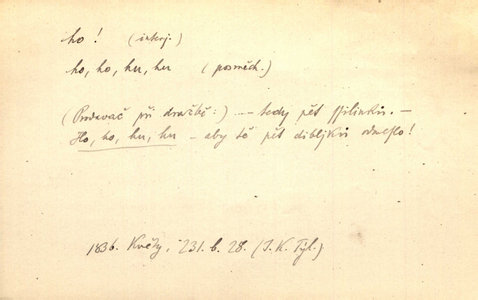 ho! (interj.)
ho, ho, hu, hu (posměch.)
(Prodavač při dražbě:) — tedy pět šilinků. —
Ho, ho, hu, hu — aby tě pět dibljků odneslo!
1836. Květy, 231. b. 28. (J. K. Tyl.)